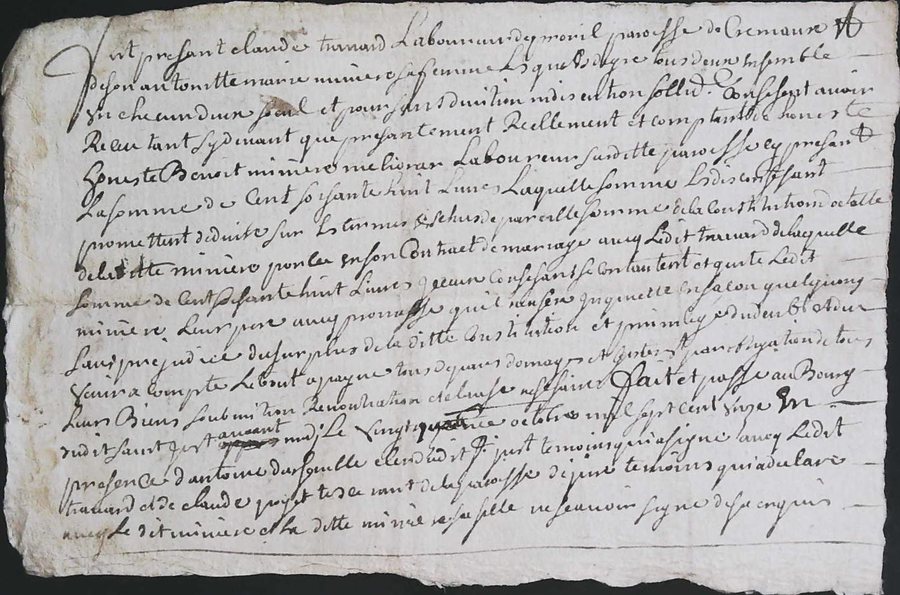 fut presant claude travard Laboureur de paroisse de Cremaux Et
de son autoritte marie miniere sa femme Lesquels de gre tous deux ensemble
un cheaucun deux seul et pour sans divition ni discution sollid. Confesent avoir
Receu tant sydevant que presantement Reellement et comptant de honeste
honeste Benoit miniere Laboureur sur ditte paroisse cy presant
La somme de Cent soisante huit Livres Laquelle somme Les dis confesant
promettent deduire sur Les termes de pareille somme de la Constitution dotalle
de laditte miniere portee en son Contract de mariage avecq Ledit travard de laquelle
somme de Cent soisante huit Livres Jceux Confesant se Contantent et quite Ledit
miniere Leur pere avecq promesse quil nen sera Jnquiette en facon quelquonq
sans prejudice du surplus de la ditte Constitution et privilege du deub et deux
venir a compte Le tout a payne tous depans domages et Jnterest par obligation de tous
Leurs Biens soubmition Renontiation et clause nessesaires fait et passe au Bourg
dudit saint Just avant midj Le vingt octobre mil sept cent unze En
presence dantoine clerc dudit st. just temoins qui a signe avecq Ledit
travard et de claude de la paroisse de temoins qui a declare
avecq Le dit miniere et La ditte miniere sa fille ne scavoir signe de ce enquis